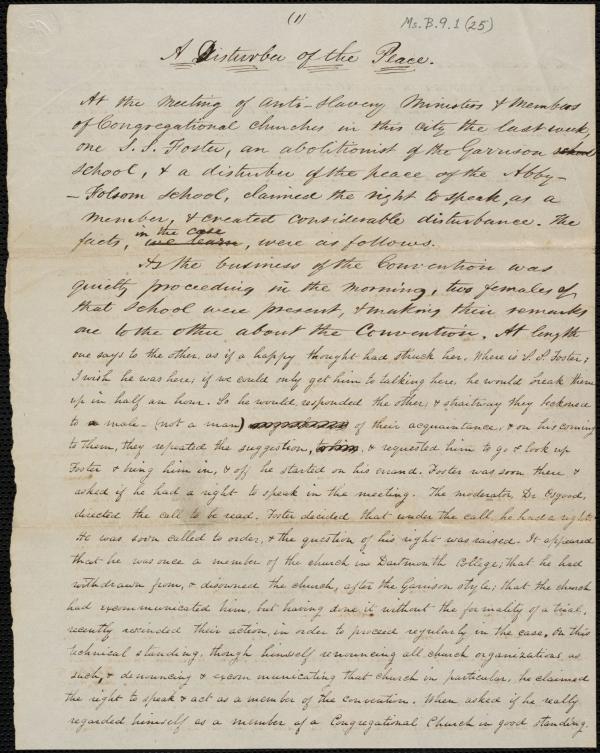 (1)
Ms. B. 9. 1 (25)
A Disturber of the Peace.
At the meeting of Anti-Slavery Ministers & Members
of Congregational Churches in this city the last week,
one S. S. Foster, an abolitionist of the Garrison school
school, & a disturber of the peace of the Abby-
-Folsom School, claimed the right to speak, as a
member, & created considerable disturbance. The
in the case
facts, we learn, were as follows.
As the business of the Convention was
quietly proceeding in the morning, two females of
that School were present, & making their remarks
one to the other about the Convention. At length
one says to the other, as if a happy thought had struck her, Where is S. S. Foster;
I wish he was here; if we could only get him to talking here, he would break them
up in half an hour. So he would, responded the other; & straitway they beckoned
to a male - (not a man) of their acquaintance, & on his coming
to them, they repeated the suggestion, & requested him to go & look up
Foster & bring him in, & off he started on his errand. Foster was soon there &
asked if he had a right to speak in the meeting. The moderator, Dr Osgood,
directed the call to be read. Foster decided that under the call, he had a right.
He was soon called to order, & the question of his right was raised. It appeared
that he was once a member of the church in Dartmouth College; that he had
withdrawn from, & disowned the church, after the Garrison style; that the church
had excommunicated him, but having done it without the formality of a trial,
recently rescinded their action, in order to proceed regularly in the case. On this
technical standing, though himself renouncing all church organizations, as
such, & denouncing & excommunicating that church in particular, he claimed
the right to speak & act as a member of the convention. When asked if he really
regarded himself as a member of a Congregational Church in good standing,